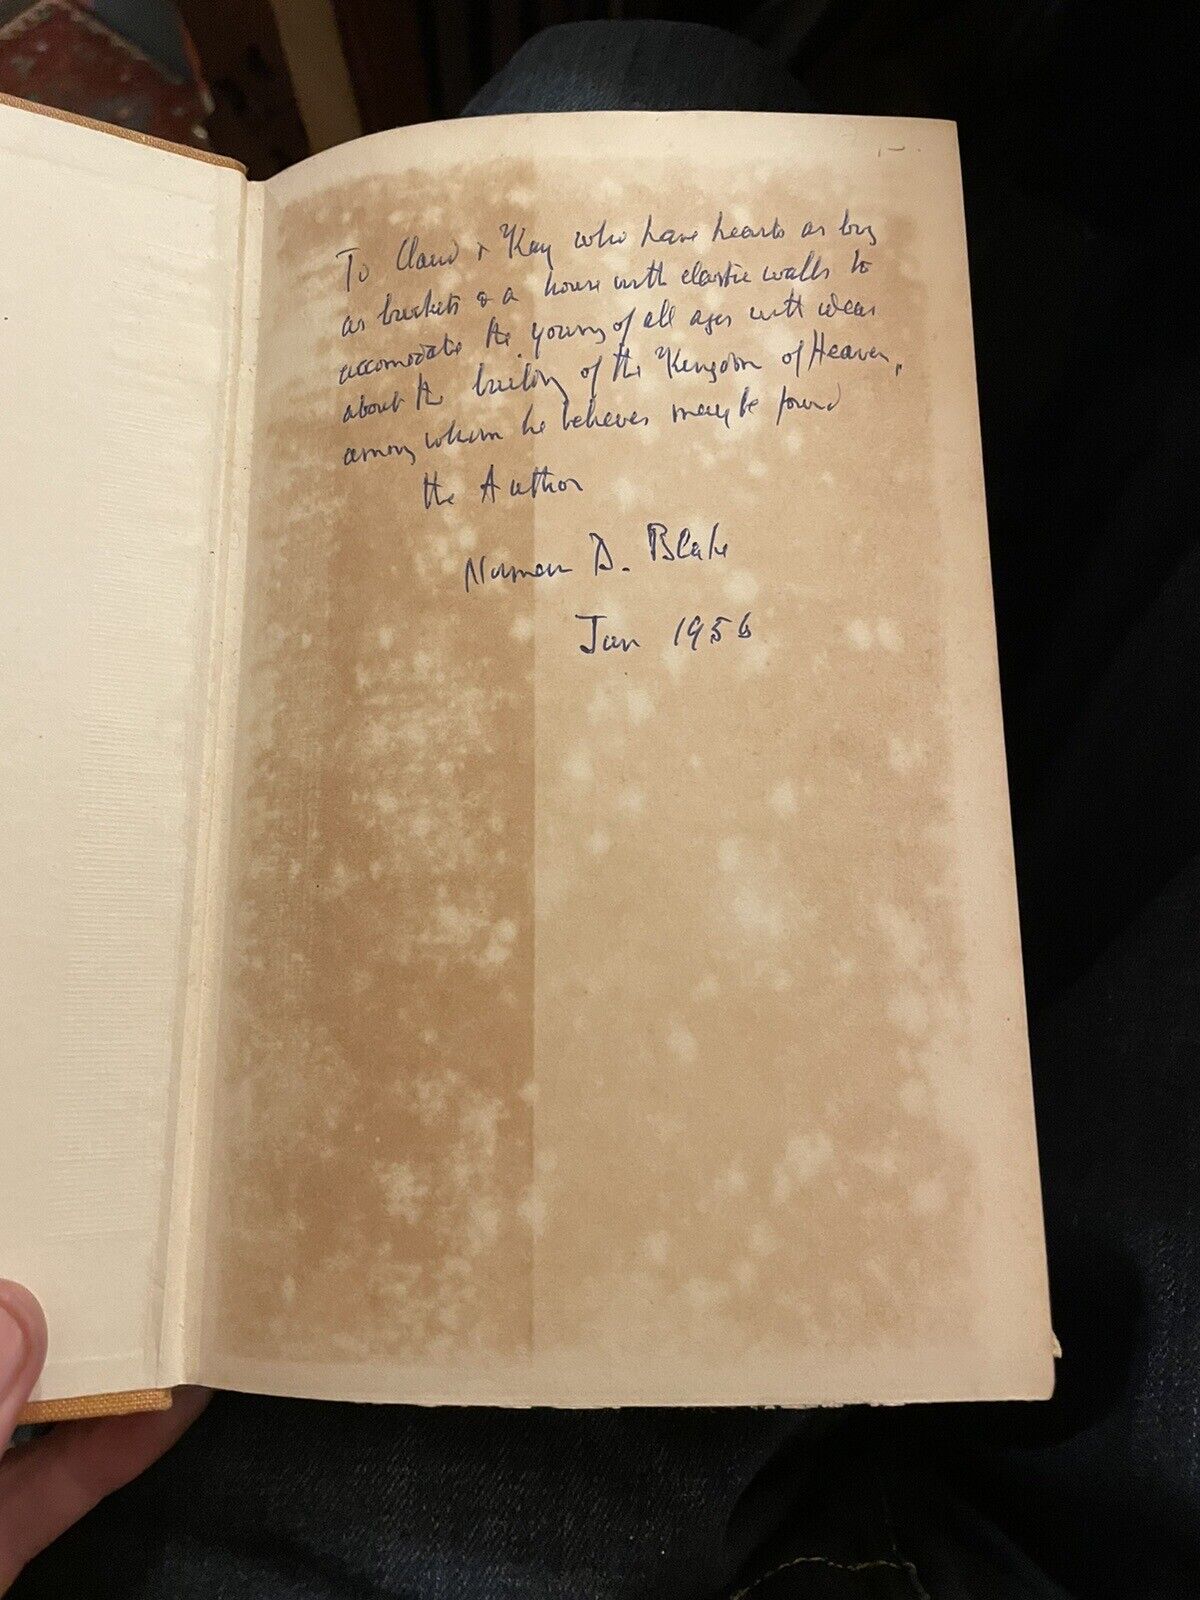 To Claud & Kay who have hearts as big
as buckets & a house with elastic walls to
accomodate the young of all ages with ideas
about the building of the Kingdom of Heaven,
among whom he believes may be found
the Author
Norman D. Blake
Jan 1956